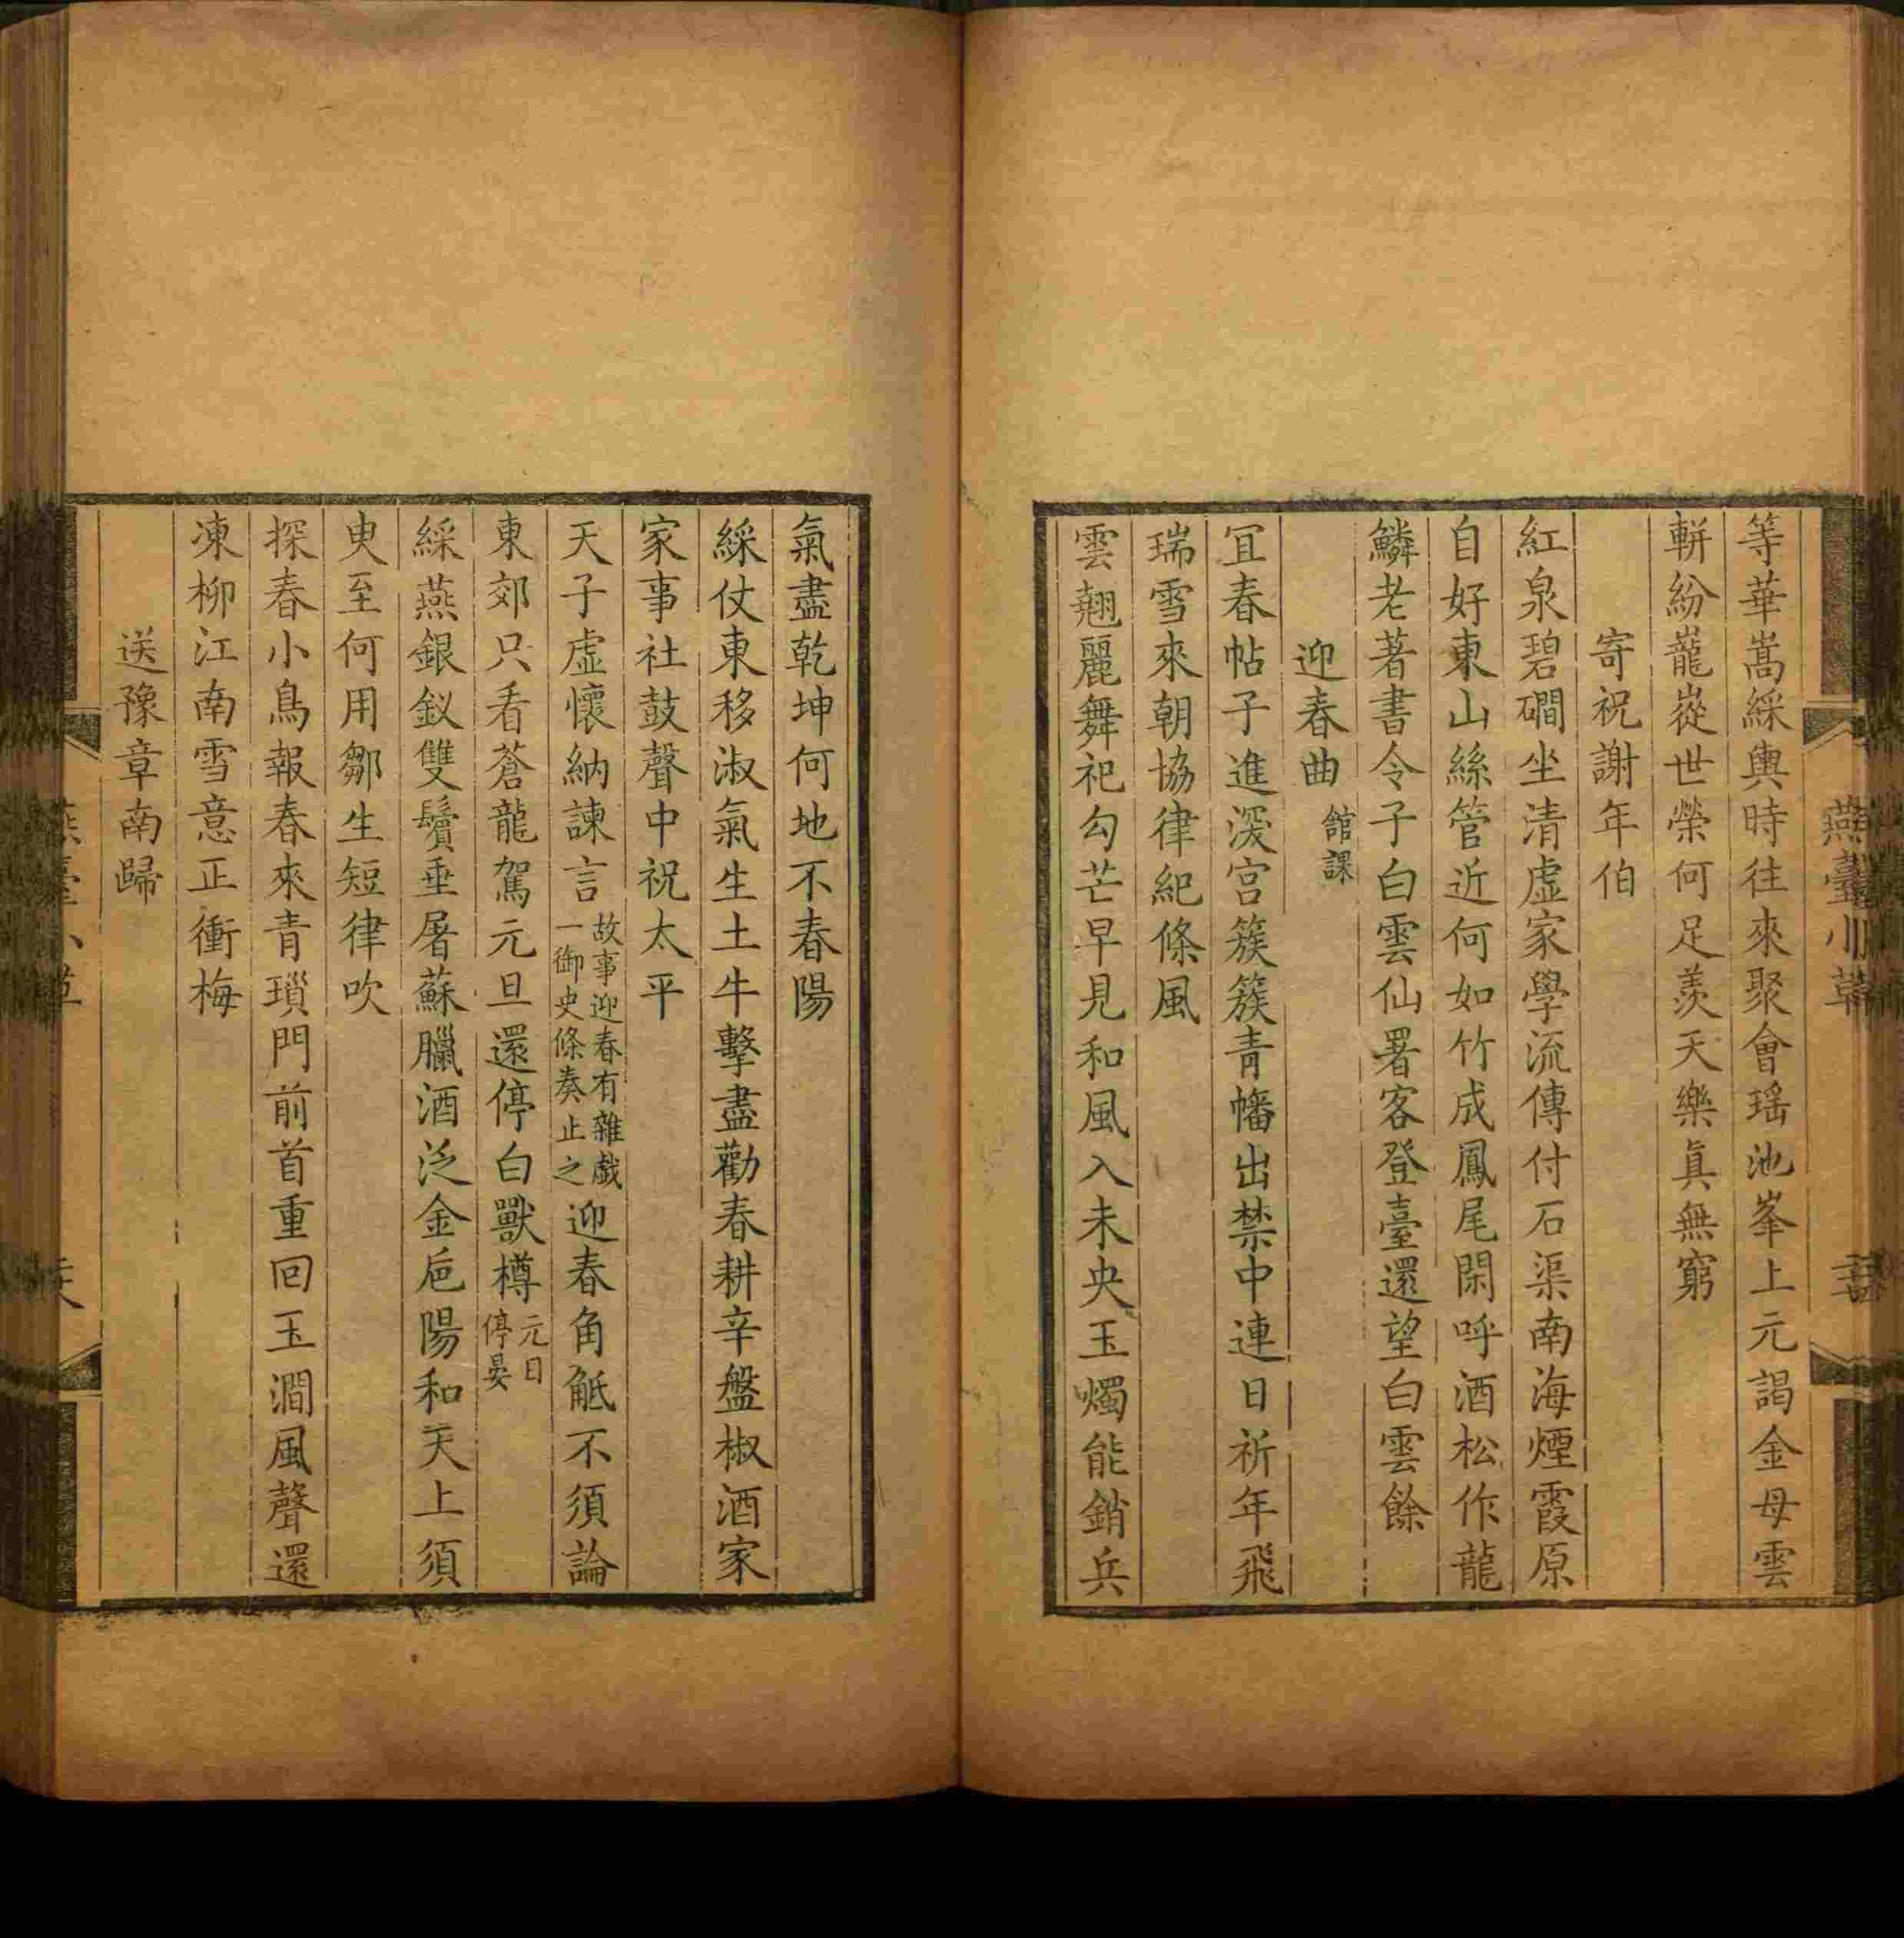 等華嵩綵輿時往來聚會瑶池峯上元謁金母雲
軿紛巃嵷世榮何足羨天樂眞無窮
寄祝謝年伯
紅泉碧磵坐清虛家學流傳付石渠南海煙霞原
自好東山絲管近何如竹成鳳尾閑呼酒松作龍
鱗老著書令子白雲仙署客登臺還望白雲餘
迎春曲 館課
宜春帖子進深宮簇簇青幡出禁中連日祈年飛
瑞雪來朝協律紀條風
雲翹麗舞祀勾芒早見和風入未央玉燭能銷兵
氣盡乾坤何地不春陽
綵仗東移淑氣生土牛擊盡勸春耕辛盤椒酒家
家事社鼓聲中祝太平
天子虛懷納諫言 故事迎春有雜戲一御史條奏止之 迎春角觝不須論
東郊只看蒼龍駕元旦還停白獸樽 元日停晏
綵燕銀釵雙鬢垂屠蘇臘酒泛金卮陽和天上須
臾至何用鄒生短律吹
探春小鳥報春來青瑣門前首重回玉澗風聲還
凍柳江南雪意正衝梅
送豫章南歸